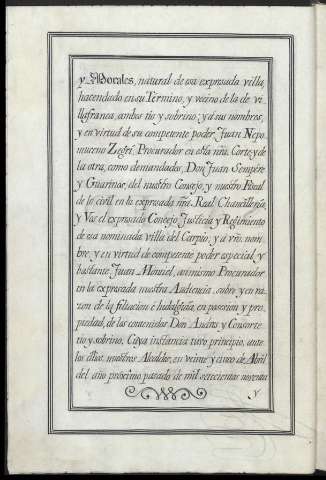 y Morales, natural de esa expresada villa,
hacendado en su Termino, y vecino de la de Vi-
llafranca, ambos tio y sobrino; y á sus nombres,
y en virtud de su competente poder Juan Nepo-
muceno Zegrí, Procurador en esta ntrâ. Corte; y de
la otra, como demandados, Don Juan Sempere
y Guarinos, del nuestro Consejo, y nuestro Fiscal
de lo civil en la expresada ntrâ. Real Chancillería
y Vos el expresado Concejo, Justicia y Regimiento
de esa nominada villa del Carpio, y á vtrô. nom-
bre, y en virtud de competente poder especial, y
bastante Juan Manuel, asimismo Procurador
en la expresada nuestra Audiencia, sobre y en ra-
zon de la filiacion é hidalguía, en posesion y pro-
piedad, de los contenidos Don Andres y Consorte
tio y sobrino; Cuya instancia tuvo principio, ante
los dhôs. nuestros Alcaldes, en veinte y cinco de Abril
del año próximo pasado de mil setecientos noventa
y